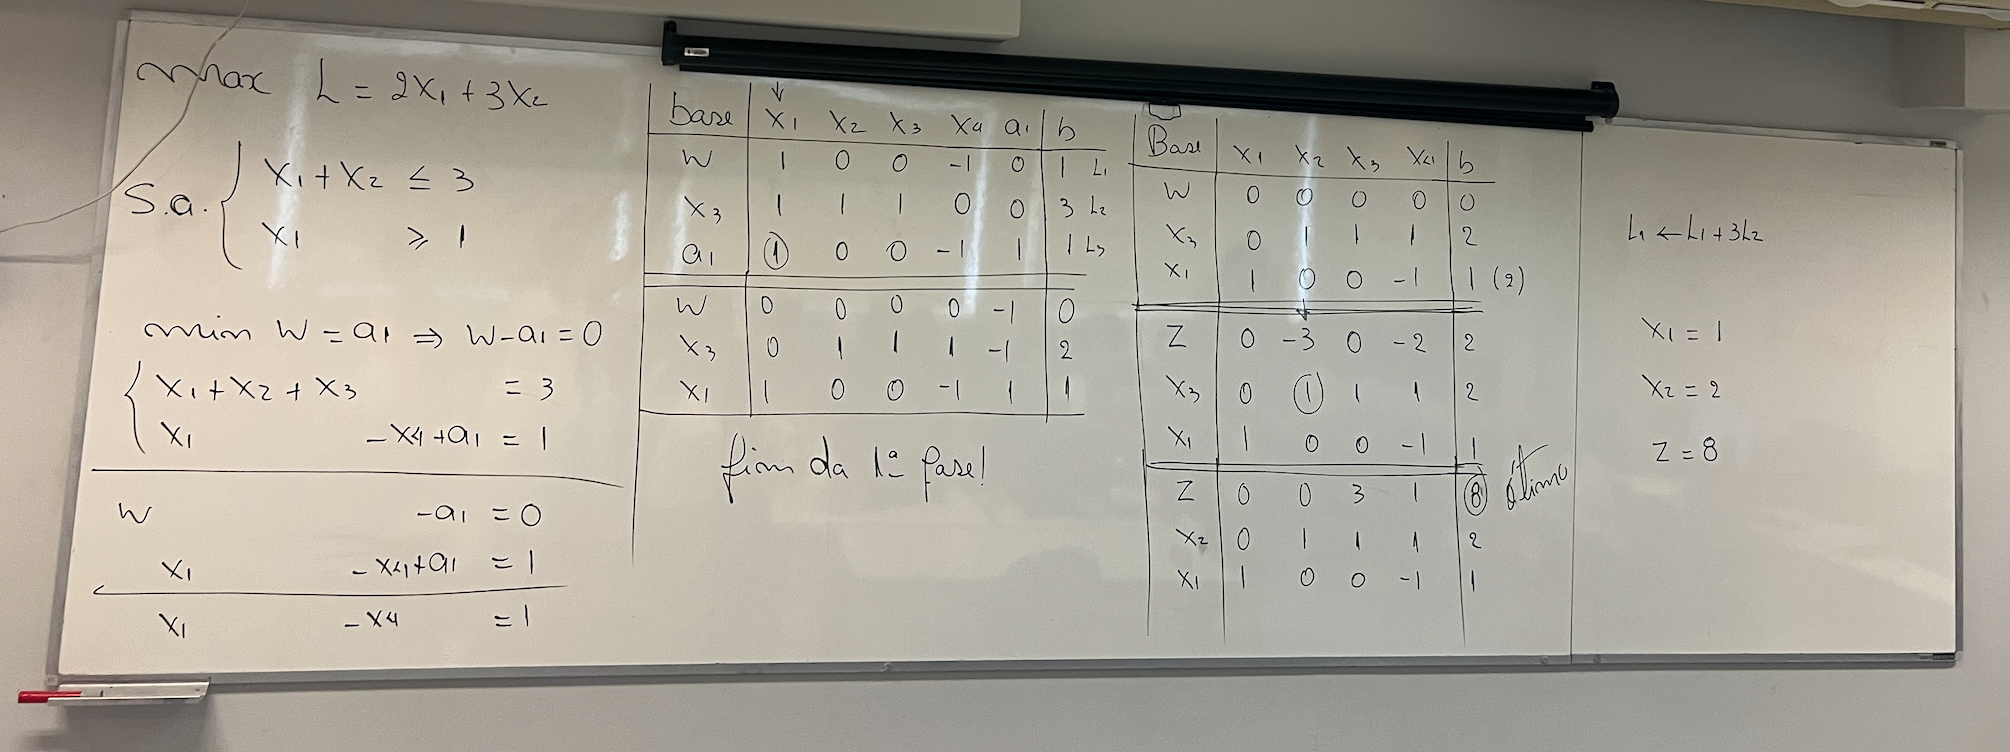 max L = 2x₁ + 3x₂
S.a. { x₁ + x₂ ≤ 3
x₁ ≥ 1
min W = a₁ ⇒ W - a₁ = 0
{ x₁ + x₂ + x₃ = 3
x₁ - x₄ + a₁ = 1
W - a₁ = 0
x₁ - x₄ + a₁ = 1
x₁ - x₄ = 1
↓
base x₁ x₂ x₃ x₄ a₁ b
W 1 0 0 -1 0 1 L₁
x₃ 1 1 1 0 0 3 L₂
a₁ 1 0 0 -1 1 1 L₃
W 0 0 0 0 -1 0
x₃ 0 1 1 1 -1 2
x₁ 1 0 0 -1 1 1
fim da 1ª fase!
Base x₁ x₂ x₃ x₄ b
W 0 0 0 0 0
x₃ 0 1 1 1 2
x₁ 1 0 0 -1 1 (2)
↓
Z 0 -3 0 -2 2
x₃ 0 1 1 1 2
x₁ 1 0 0 -1 1
Z 0 0 3 1 8 ótimo
x₂ 0 1 1 1 2
x₁ 1 0 0 -1 1
L₁ ← L₁ + 3L₂
x₁ = 1
x₂ = 2
Z = 8